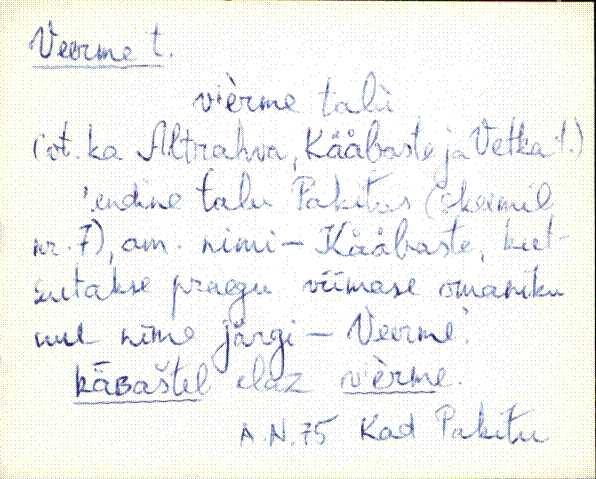 Veerme t.
vi̯èrme talù
(vt. ka Altrahva, Kääbaste ja Vetka t.)
'endine talu Pakitus (skeemil
nr. 7), am. nimi – Kääbaste, kut-
sutakse praegu viimase omaniku
nime järgi – Veerme'.
käʙaštel elaz vi̯èrme.
A.N. 75 Kad Pakitu